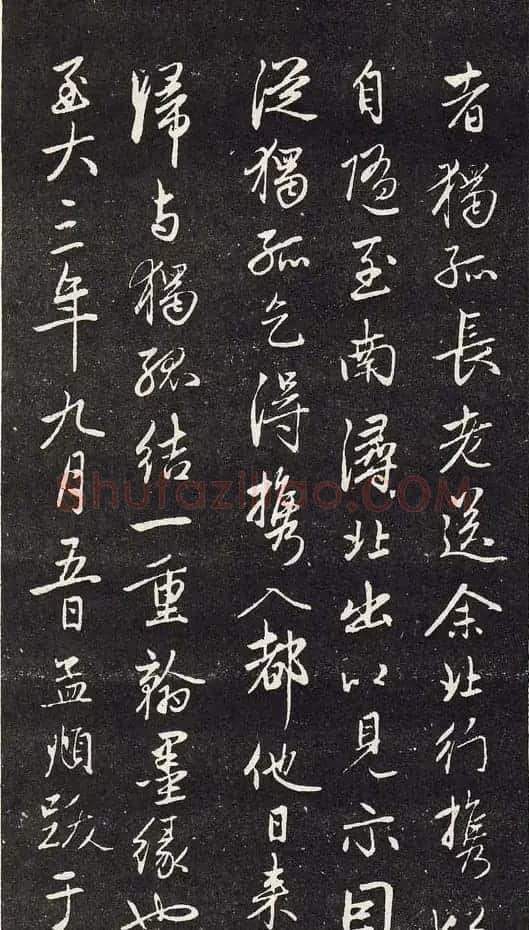 者獨孤長老送余北行攜以
自隨至南潯北出以見示因
從獨孤乞得攜入都他日來
歸與獨孤結一重翰墨緣也
至大三年九月五日孟頫跋于
shufaziliao.COM